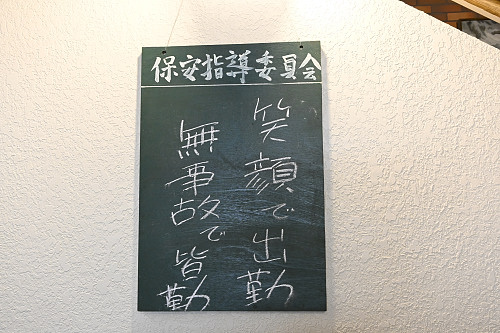 保安指導委員会
笑顔で出勤
無事故で皆勤